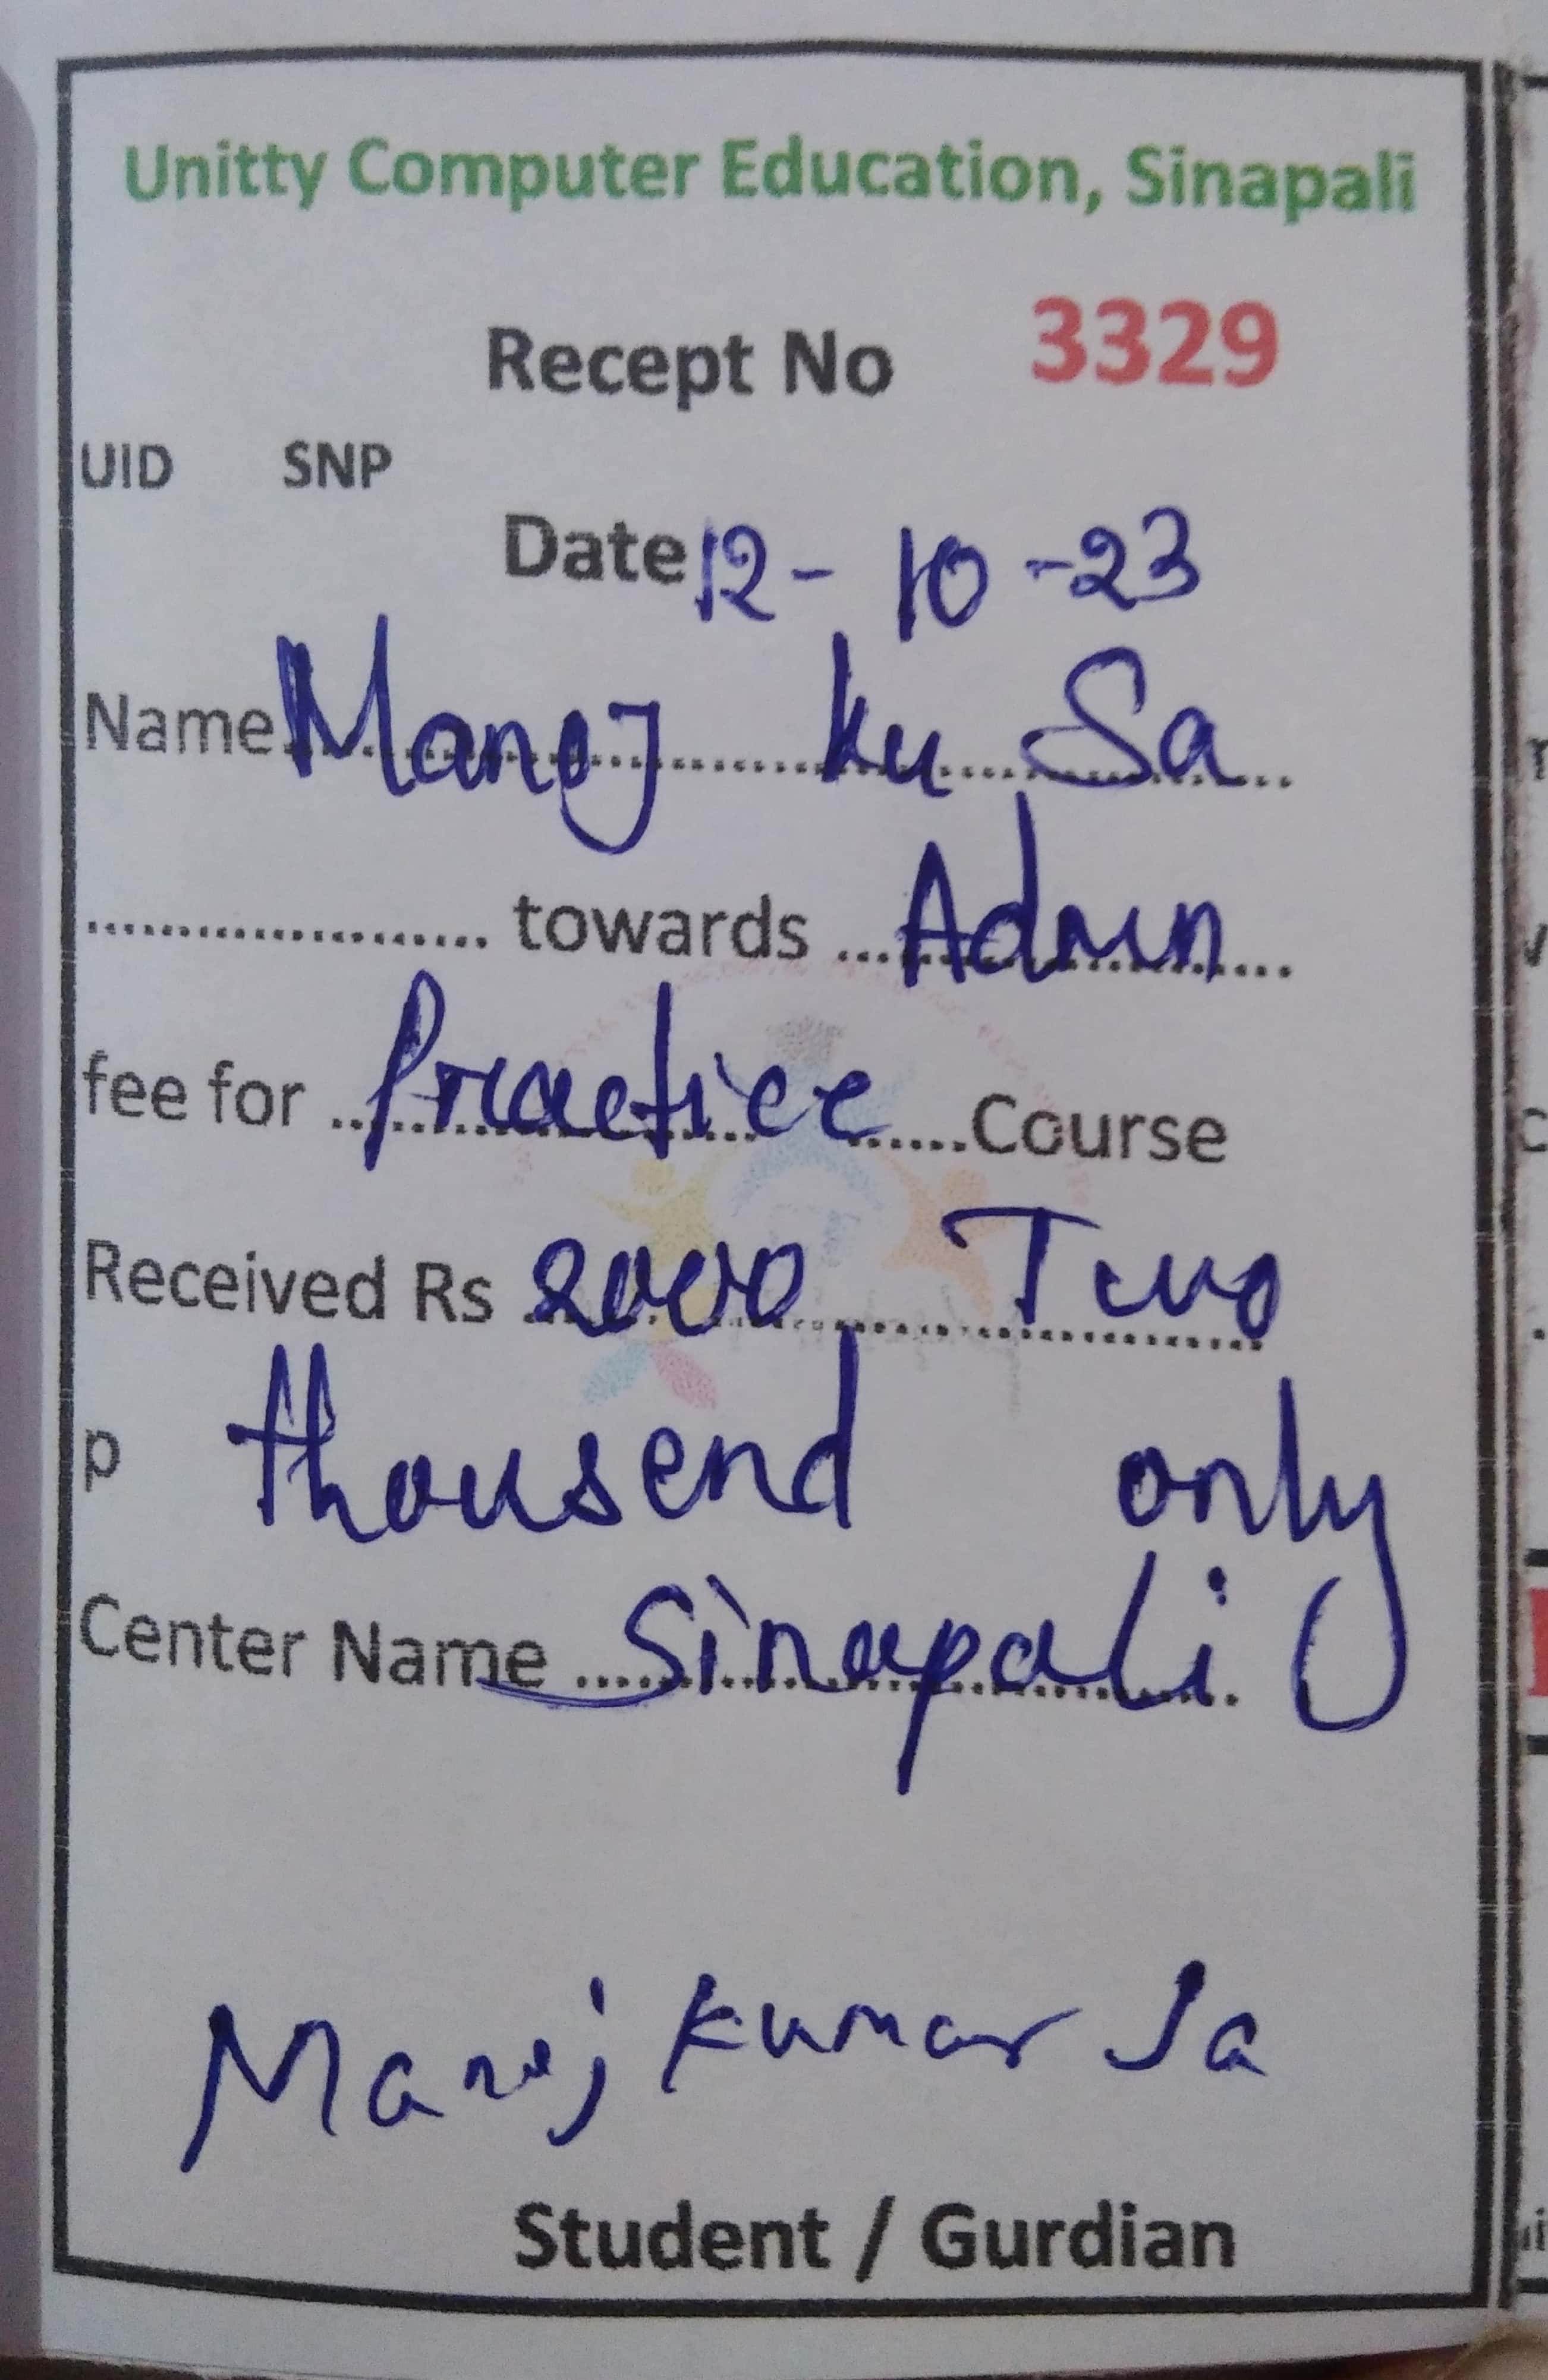 Unitty Computer Education, Sinapali
Recept No 3329
UID SNP
Date 12-10-23
Name Manoj Ku Sa
.................... towards ... Admn
fee for ... Practice ...... Course
Received Rs 2000 Two
p thousend only
Center Name ... Sinapali
Manoj Kumar Sa
Student / Gurdian